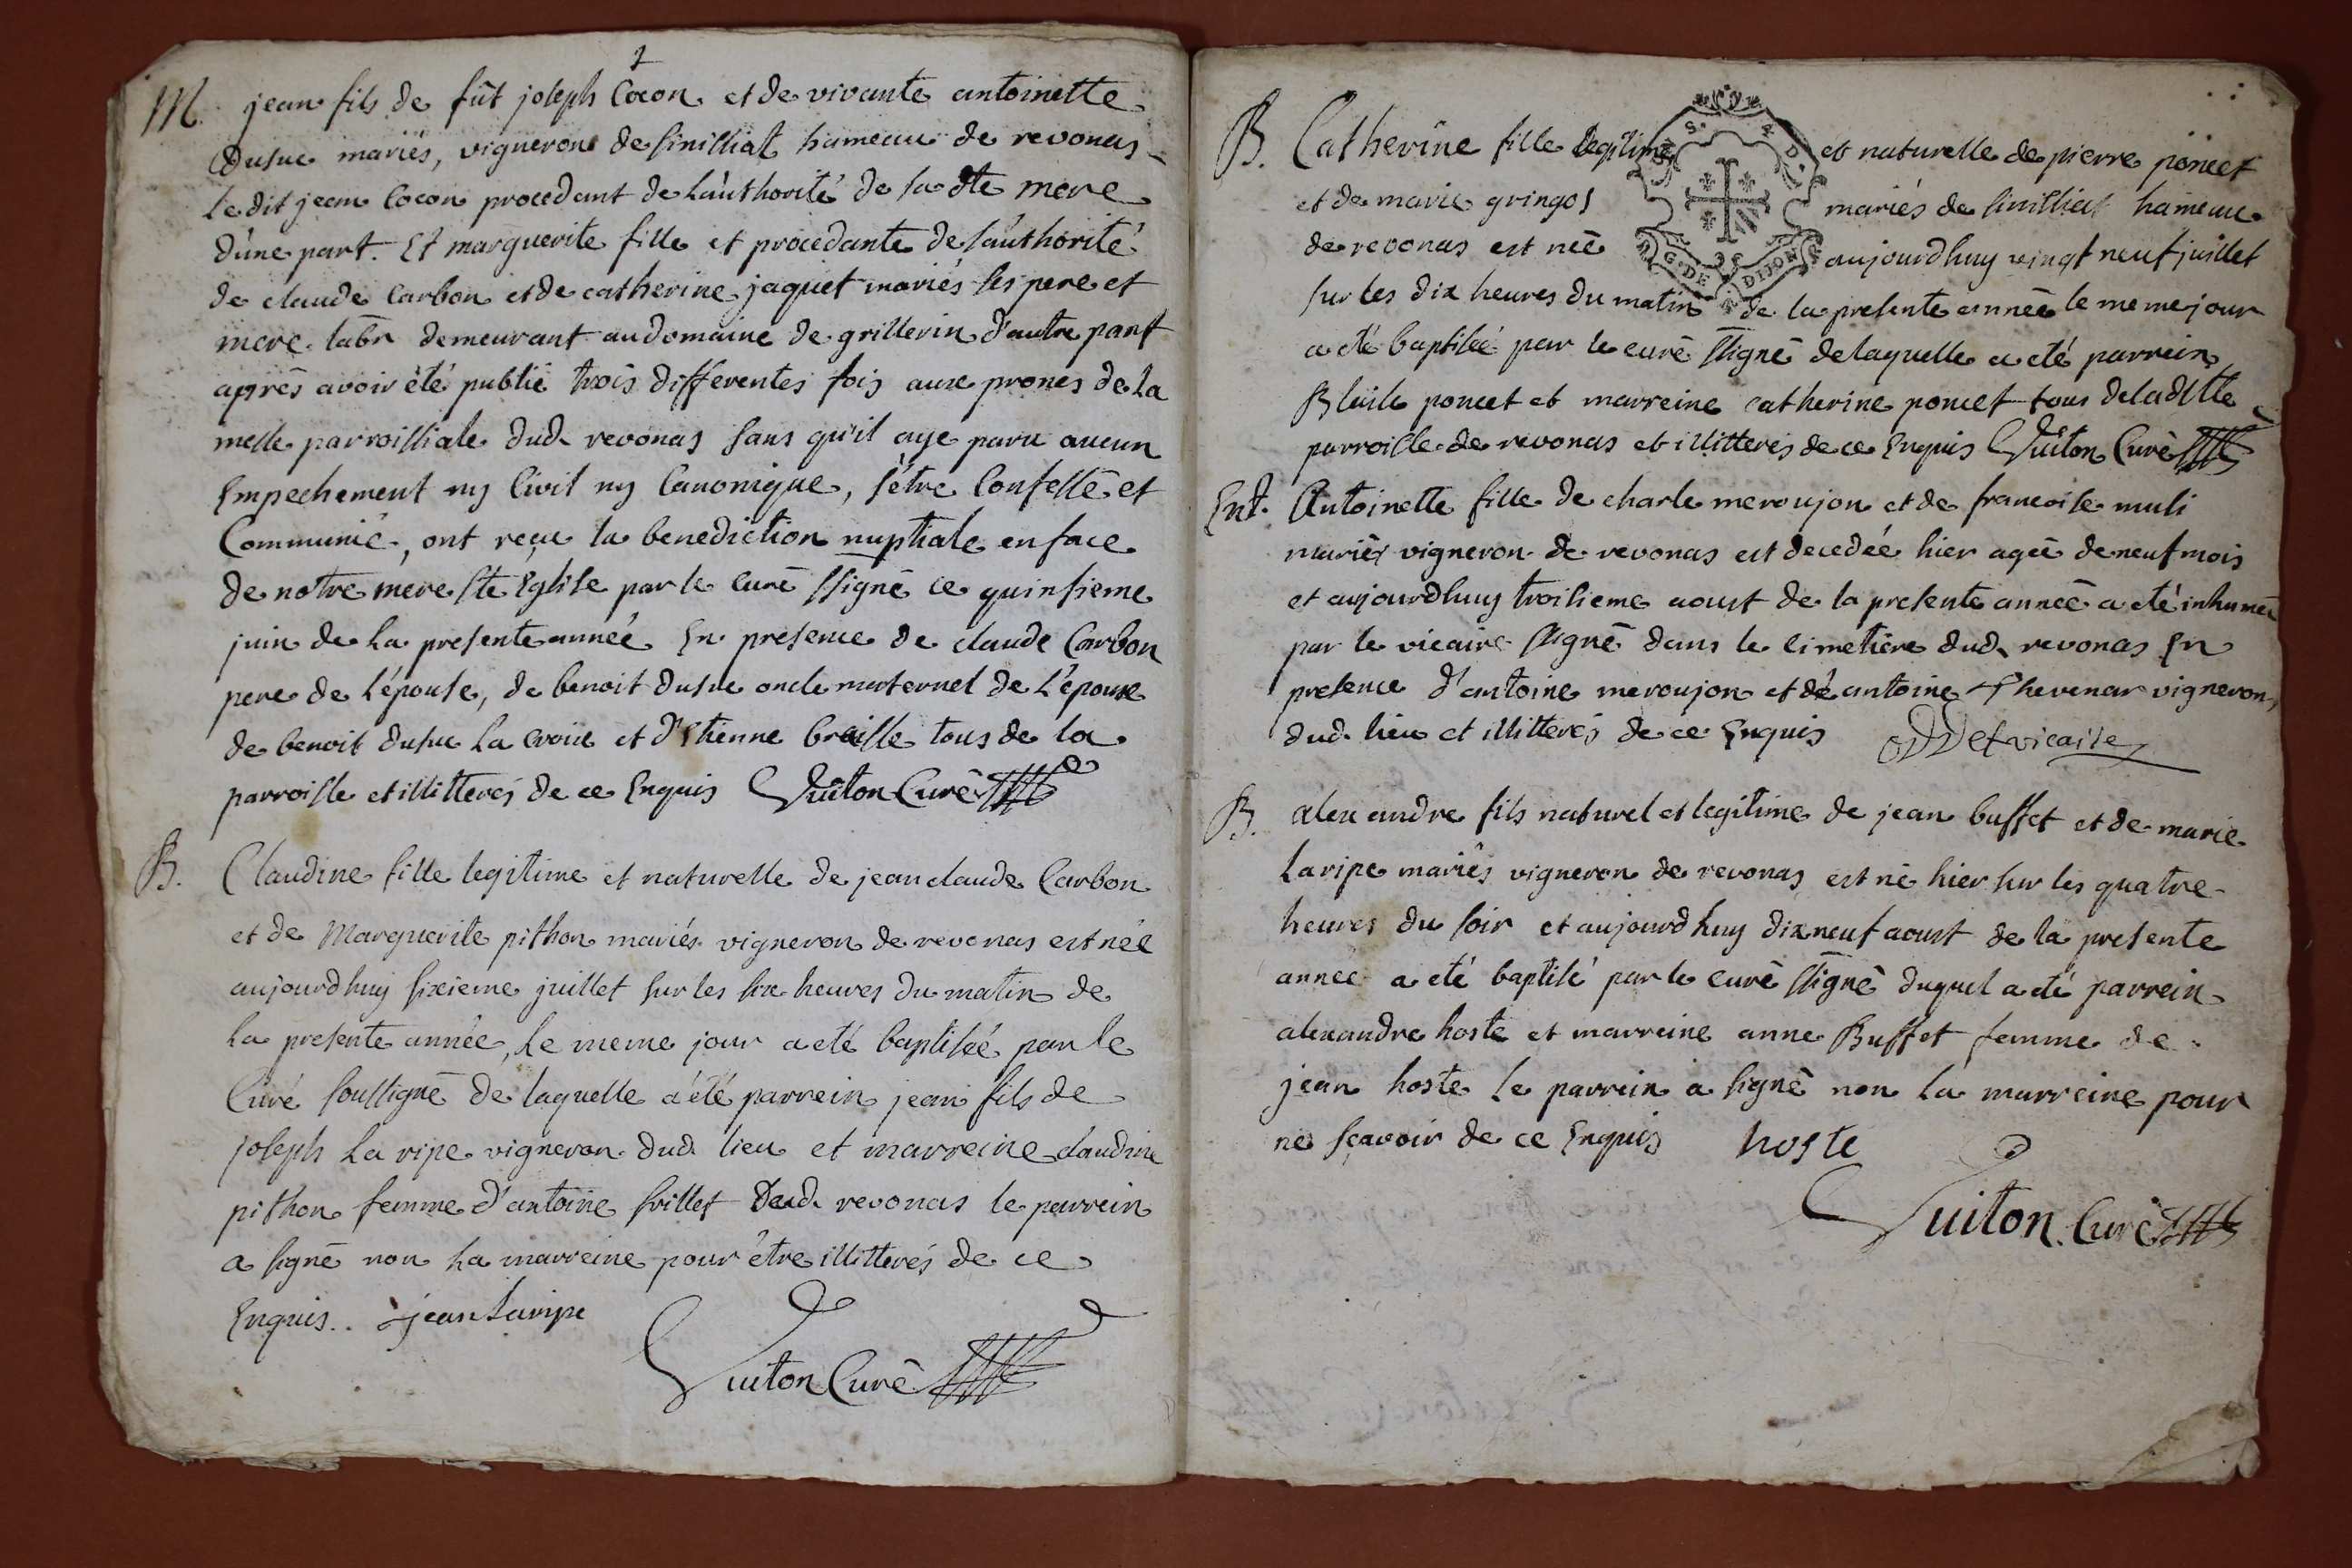 M. jean fils de fût joseph Cocon et de vivante antoinette
Dusuc mariés, vignerons de sinilliat hameau de revonas
le dit jean Cocon procedant de l'authorité de sa dte mere
d'une part. Et marguerite fille et procedante de l'authorité
de claude Carbon et de catherine jaquet mariés ses pere et
mere. labr demeurant au domaine de grillerin d'autre part
aprés avoir été publié trois differentes fois aux prones de la
messe parroissiale dud. revonas sans qu'il aye paru aucun
Empechement ny Civil ny Canonique, s'être Confessé et
Communié, ont reçu la benediction nuptiale en face
de notre mere Ste Eglise par le Curé ssigné ce quinsieme
juin de la presente année En presence de claude Carbon
pere de l'épouse, de benoit dusuc oncle maternel de l'époux
de benoit dusuc la croix et d'Etienne braille tous de la
parroisse et illitterés de ce Enquis Guiton Curé
B. Claudine fille legitime et naturelle de jean claude Carbon
et de Marguerite pithon mariés vigneron de revonas est née
aujourdhuy sixieme juillet sur les six heures du matin de
la presente année, le meme jour a eté baptisée par le
Curé soussigné de laquelle a été parrein jean fils de
joseph la ripe vigneron dud. lieu et marreine claudine
pithon femme d'antoine frillet dud. revonas le parrein
a signé non la marreine pour être illitterés de ce
Enquis.. jean Laripe
Guiton Curé
B. Catherine fille legitime et naturelle de pierre poncet
et de marie gringos mariés de sinilliat hameau
de revonas est neé aujourdhuy vingt neuf juillet
G. DE DIJON
sur les dix heures du matin de la presente année le meme jour
a été baptisée par le curé ssigné de laquelle a eté parrein
Blaise poncet et marreine catherine poncet tous de ladtte
parroisse de revonas et illitterés de ce Enquis Guiton Curé
Ent. Antoinette fille de charle meroujon et de francoise muli
mariés vigneron de revonas est decedée hier ageé de neuf mois
et aujourdhuy troisieme aoust de la presente anneé a eté inhumée
par le vicaire ssigné dans le cimetiere dud. revonas En
presence d'antoine meroujon et de antoine Thevenar vignerons
dud. lieu et illitterés de ce Enquis vicaire
B. alexandre fils naturel et legitime de jean buffet et de marie
Laripe mariés vigneron de revonas est né hier sur les quatre
heures du soir et aujourdhuy dix neuf aoust de la presente
anneé a eté baptisé par le curé ssigné duquel a eté parrein
alexandre hoste et marreine anne Buffet femme de
jean hoste le parrein a signé non la marreine pour
ne sçavoir de ce Enquis hoste
Guiton Curé